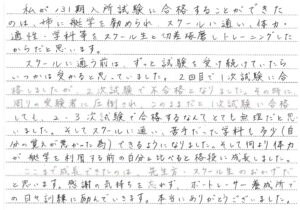 私が131期入所試験に合格することができた
のは、姉に艇学を勧められ スクールに通い、体力・
適性・学科等をスクール生と切磋琢磨しトレーニングした
からだと思います。
スクールに通う前は、ずっと試験を受け続けていたら
いつかは受かると思っていました。2回目で1次試験に合
格しましたが、2次試験で不合格となりました。その時に
周りの受験者に圧倒され、このままだと1次試験に合格
しても、2・3次試験で合格するなんてとても無理だと思
いました。そしてスクールに通い、苦手だった学科も多少(自
分の覚えが悪かった為)できるようになりました。そして何より体力
が艇学を利用する前の自分と比べると格段に成長しました。
ここまで成長できたのは、先生方・スクール生のおかげだ
と思います。感謝の気持ちを忘れず、ボートレーサー養成所で
の日々訓練に励んでいきます。本当にありがとうございました。